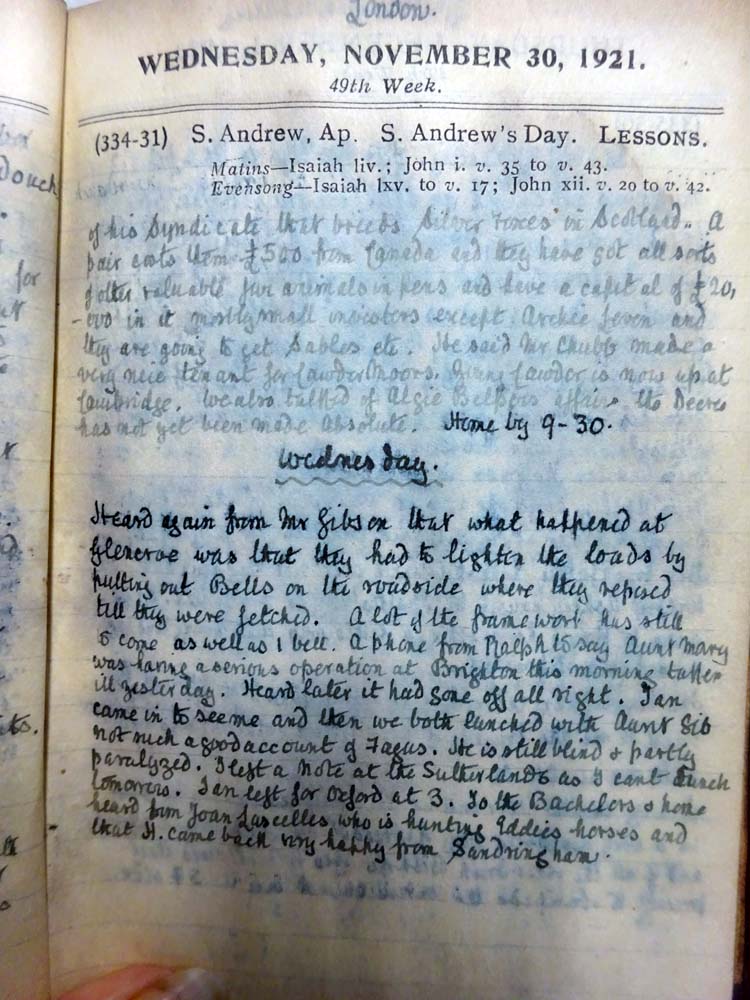 London.
WEDNESDAY, NOVEMBER 30, 1921.
49th Week.
(334-31) S. Andrew, Ap. S. Andrew's Day. LESSONS.
Matins—Isaiah liv.; John i. v. 35 to v. 43.
Evensong—Isaiah lxv. to v. 17; John xii. v. 20 to v. 42.
of his Syndicate that breeds 'Silver Foxes' in Scotland. A
pair costs them £500 from Canada and they have got all sorts
of other valuable fur animals in pens and have a capital of £20,
-000 in it mostly small investors except Archie and
they are going to get Sables etc. He said Mr Chubb made a
very nice tenant for Lawder Moors. Lawder is now up at
Cambridge. We also talked of Algie affairs the Decree
has not yet been made absolute. Home by 9-30.
Wednesday.
Heard again from Mr Gibson that what happened at
Glencroe was that they had to lighten the loads by
putting out Bells on the roadside where they reposed
till they were fetched. A lot of the framework has still
to come as well as 1 bell. A phone from Ralph to say Aunt Mary
was having a serious operation at Brighton this morning taken
ill yesterday. Heard later it had gone off all right. Ian
came in to see me and then we both lunched with Aunt Sib
not such a good account of Fagus. He is still blind & partly
paralyzed. I left a note at the Sutherlands as I cant lunch
tomorrow. Ian left for Oxford at 3. To the Bachelors & home
heard from Joan Lascelles who is hunting Eddies horses and
that H. came back very happy from Sandringham.